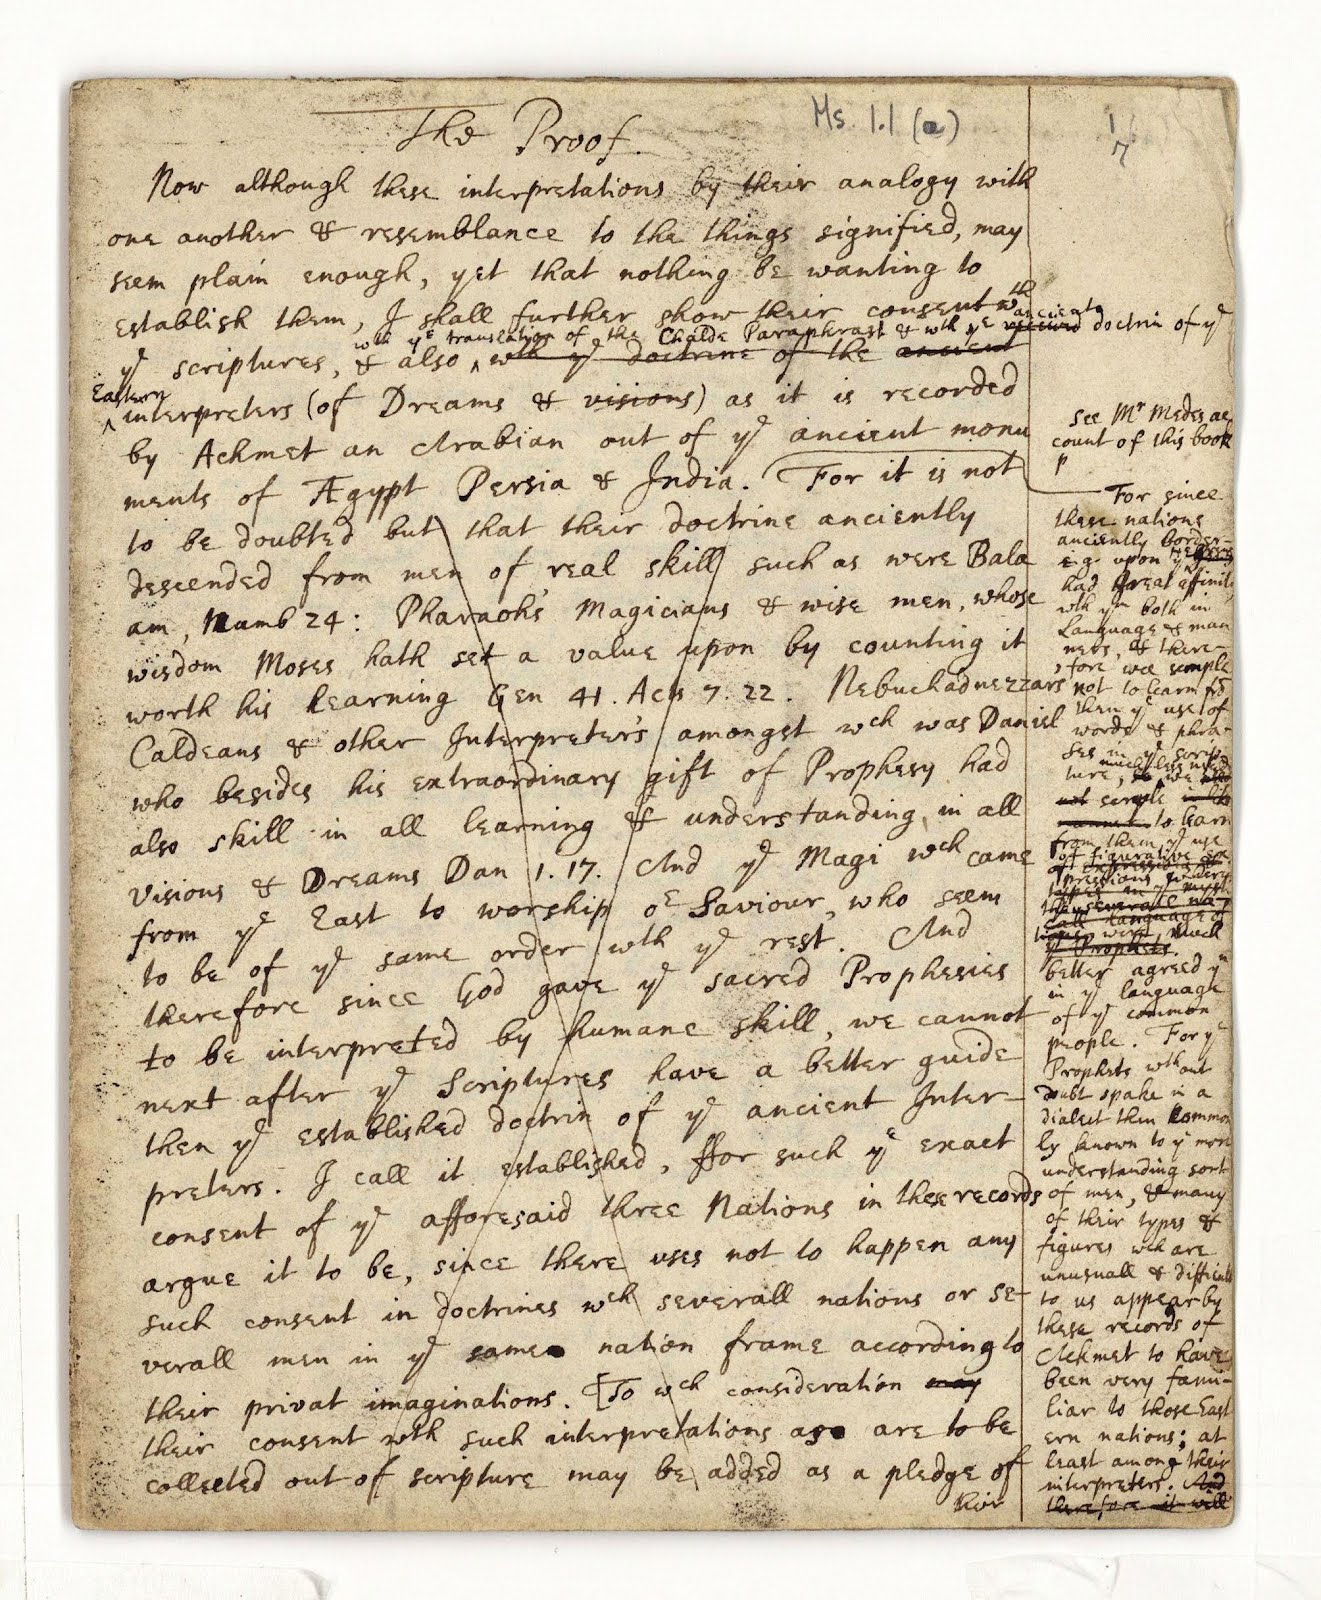 The Proof.
Ms 1.1 (a)
17
Now although these interpretations by their analogy with
one another & resemblance to the things signified, may
seem plain enough, yet that nothing be wanting to
establish them, I shall further show their consent wth
wth ye translation of the Chalde Paraphrast & wth ye received ancient doctrin of ye
ye scriptures, & also wth ye doctrine of the ancient
Eastern
interpreters (of Dreams & visions) as it is recorded
by Achmet an Arabian out of ye ancient monu
ments of Ægypt Persia & India. For it is not
to be doubted but that their doctrine anciently
descended from men of real skill such as were Bala
am, Numb 24: Pharaoh's Magicians & wise men, whose
wisdom Moses hath set a value upon by counting it
worth his learning Gen 41. Acts 7. 22. Nebuchadnezzars
Caldeans & other Interpreter's amongst wch was Daniel
who besides his extraordinary gift of Prophesy had
also skill in all learning & understanding in all
visions & Dreams Dan 1. 17. And ye Magi wch came
from ye East to worship or Saviour, who seem
to be of ye same order wth ye rest. And
therefore since God gave ye sacred Prophesies
to be interpreted by humane skill, we cannot
next after ye Scriptures have a better guide
then ye established doctrin of ye ancient Inter-
preters. I call it established, ffor such ye exact
consent of ye afforesaid three Nations in these records
argue it to be, since there uses not to happen any
such consent in doctrines wch severall nations or se-
verall men in ye same nation frame according to
their privat imaginations. [To wch consideration may
their consent wth such interpretations as are to be
collected out of scripture may be added as a pledge of
their
see Mr Medes ac
count of this book
p
For since
these nations
anciently border-
ing upon ye Hebrews
had great affinity
wth ym both in
Language & man
ners, & there-
fore wee scruple
not to learn from
them ye use of
words & phra-
ses in ye scrip-
ture, much less need we
not scruple in like
manner to learn
from them ye use
of figurative ex-
pressions
ye Prophets.
better agreed yn
in ye language
of ye common
people. For ye
Prophets without
doubt spake in a
dialect then common
ly known to ye more
understanding sort
of men, & many
of their types &
figures wch are
unusuall & difficult
to us appear by
these records of
Achmet to have
been very fami-
liar to those East
ern nations; at
least among their
interpreters. And
therefore it will